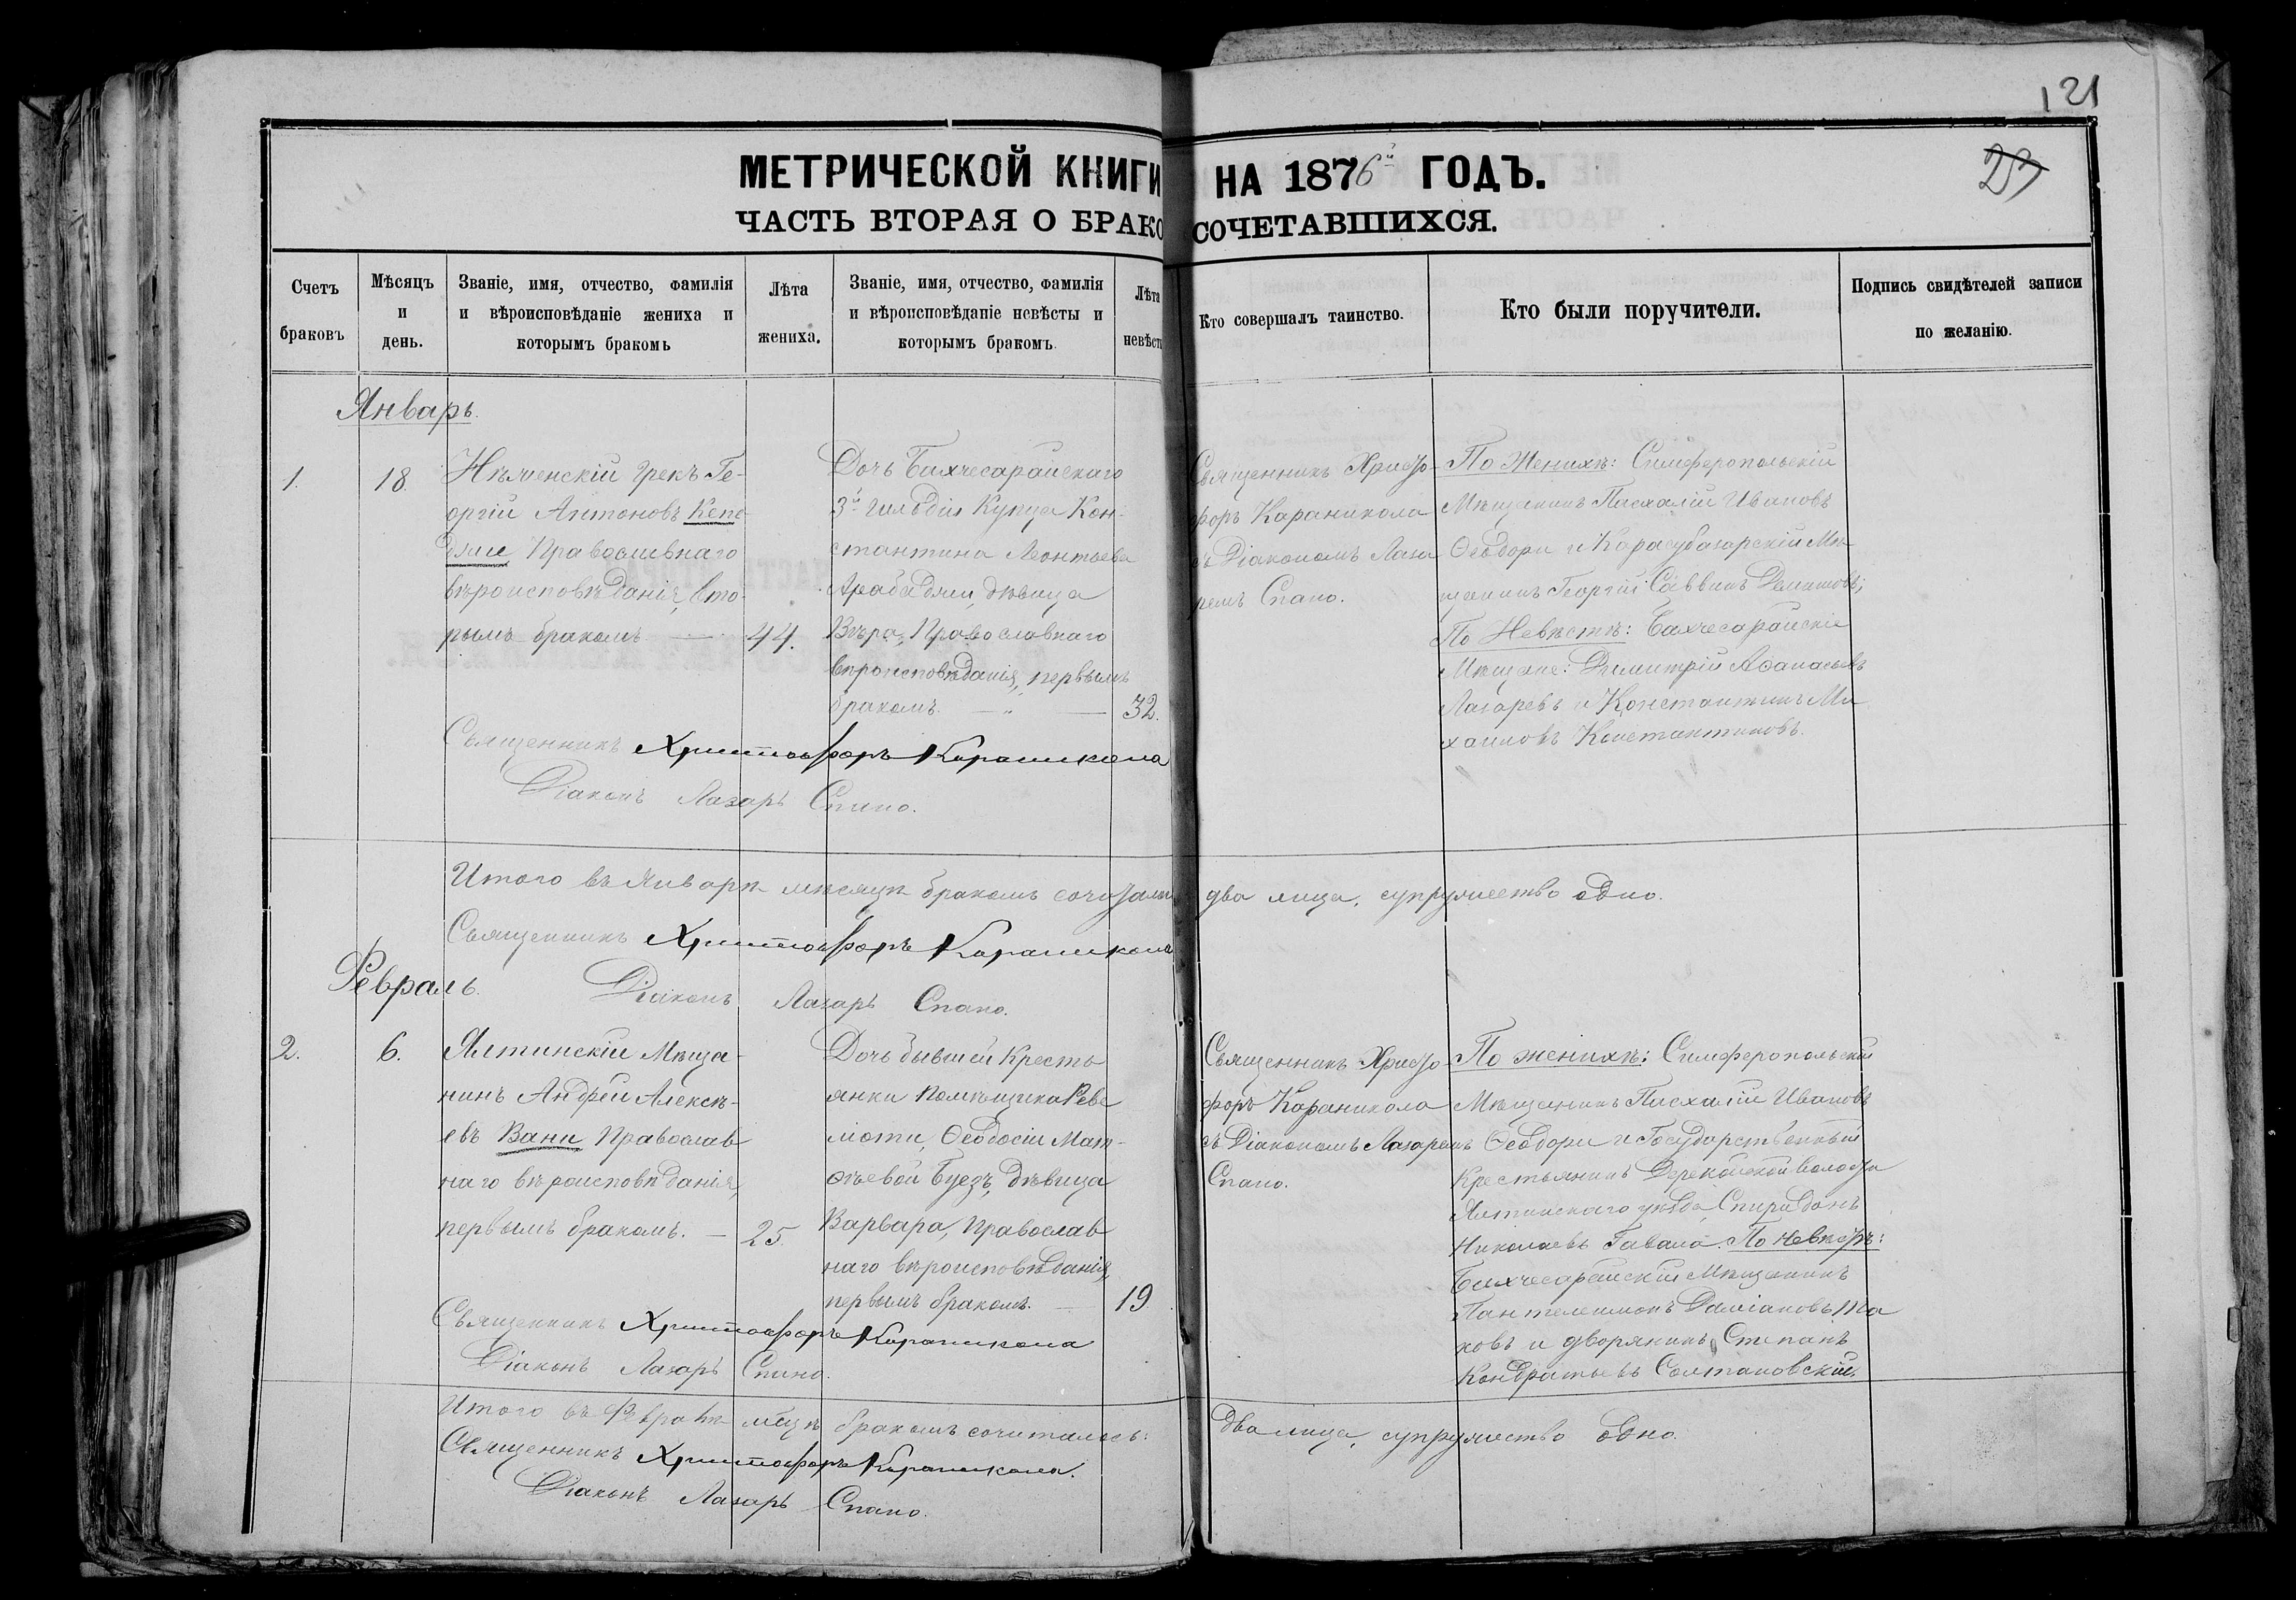 121
23
МЕТРИЧЕСКОЙ КНИГИ НА 1876й ГОДЪ.
ЧАСТЬ ВТОРАЯ О БРАКОСОЧЕТАВШИХСЯ.
Счетъ браковъ
Мѣсяцъ и день.
Званіе, имя, отчество, фамилія
и вѣроисповѣданіе жениха и
которымъ бракомъ
Лѣта жениха.
Званіе, имя, отчество, фамилія
и вѣроисповѣданіе невѣсты и
которымъ бракомъ.
Лѣта невѣсты
Кто совершалъ таинство.
Кто были поручители.
Подпись свидѣтелей записи
по желанію.
Январь.
1.
18.
Грекъ Ге-
оргій Антоновъ
Православнаго
вѣроисповѣданія, вто-
рымъ бракомъ
44.
Дочь Бахчесарайскаго
3й гильдіи Купца Кон-
стантина Леонтьева
Арабаджи, дѣвица
Вѣра, Православнаго
вѣроисповѣданія, первымъ
бракомъ. — „ —
32.
Священникъ Христо-
форъ Караникола
съ Діакономъ Лаза-
ремъ Спано.
По Женихѣ: Симферопольскій
Мѣщанинъ Пасхалій Ивановъ
Ѳеодори и Карасубазарскій Мѣ-
щанинъ Георгій Саввинъ
По Невѣстѣ: Бахчесарайскіе
Мѣщане: Димитрій Аѳанасьевъ
Лазаревъ и Константинъ Ми-
хаиловъ Константиновъ.
Священникъ Христофоръ Караникола
Діаконъ Лазарь Спано.
Итого въ Январѣ мѣсяцѣ бракомъ сочетались два лица, супружество одно.
Священникъ Христофоръ Караникола
Февраль.
Діаконъ Лазарь Спано.
2.
6.
Ялтинскій Мѣща-
нинъ Андрей Алексѣ-
евъ Вани Православ-
наго вѣроисповѣданія,
первымъ бракомъ. —
25.
Дочь бывшей Кресть-
янки помѣщика Реве-
ліоти, Ѳеодосіи Мат-
ѳѣевой Буезъ, дѣвица
Варвара, Православ-
наго вѣроисповѣданія,
первымъ бракомъ. —
19.
Священникъ Христо-
форъ Караникола
съ Діакономъ Лазаремъ
Спано.
По женихѣ: Симферопольскій
Мѣщанинъ Пасхалій Ивановъ
Ѳеодори и Государственный
Крестьянинъ Дерекойской волости
Ялтинскаго уѣзда Спиридонъ
Николаевъ Гавала. По невѣстѣ:
Бахчесарайскій Мѣщанинъ
Пантелеимонъ Даміановъ
и дворянинъ Степанъ
Кондратьевъ Солтановскій.
Священникъ Христофоръ Караникола
Діаконъ Лазарь Спано.
Итого въ Февралѣ мѣсяцѣ бракомъ сочитались: два лица, супружество одно.
Священникъ Христофоръ Караникола.
Діаконъ Лазарь Спано.